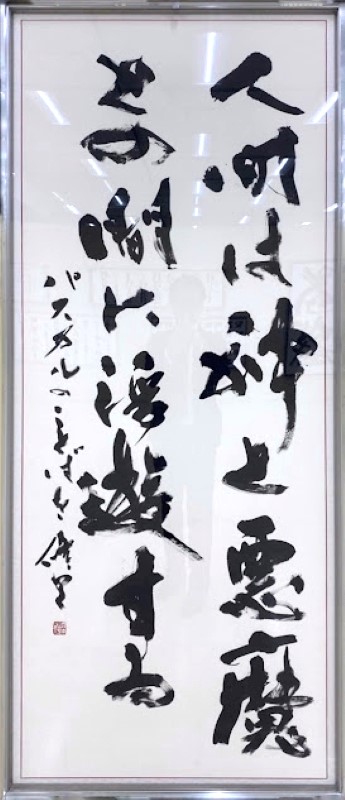 人間は神と悪魔
との間に浮遊する
パスカルのことばを